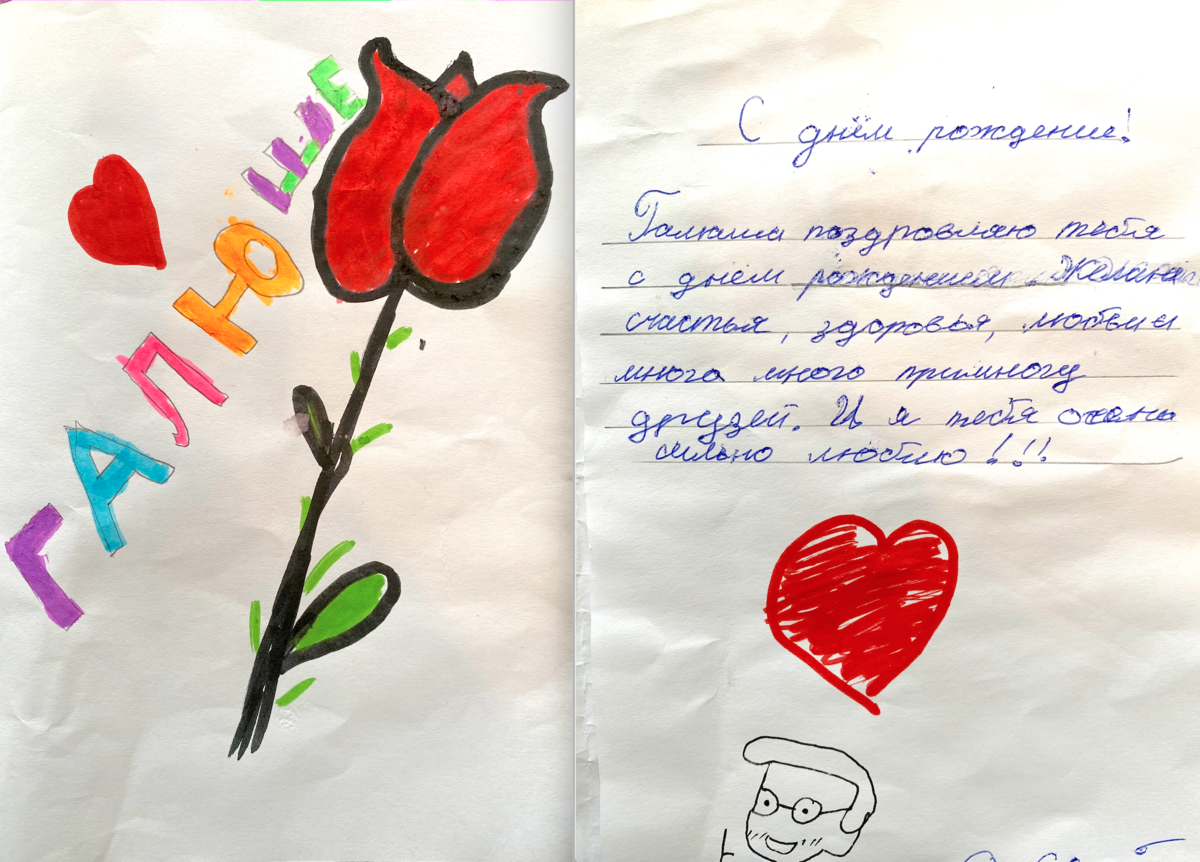 ГАЛЮШЕ
С днём рождение!
Галюша поздровляю тебя
с днём рождением. Желана
счастья, здоровья, любви и
много много примногу
друзей. И я тебя очень
сильно люблю!!!